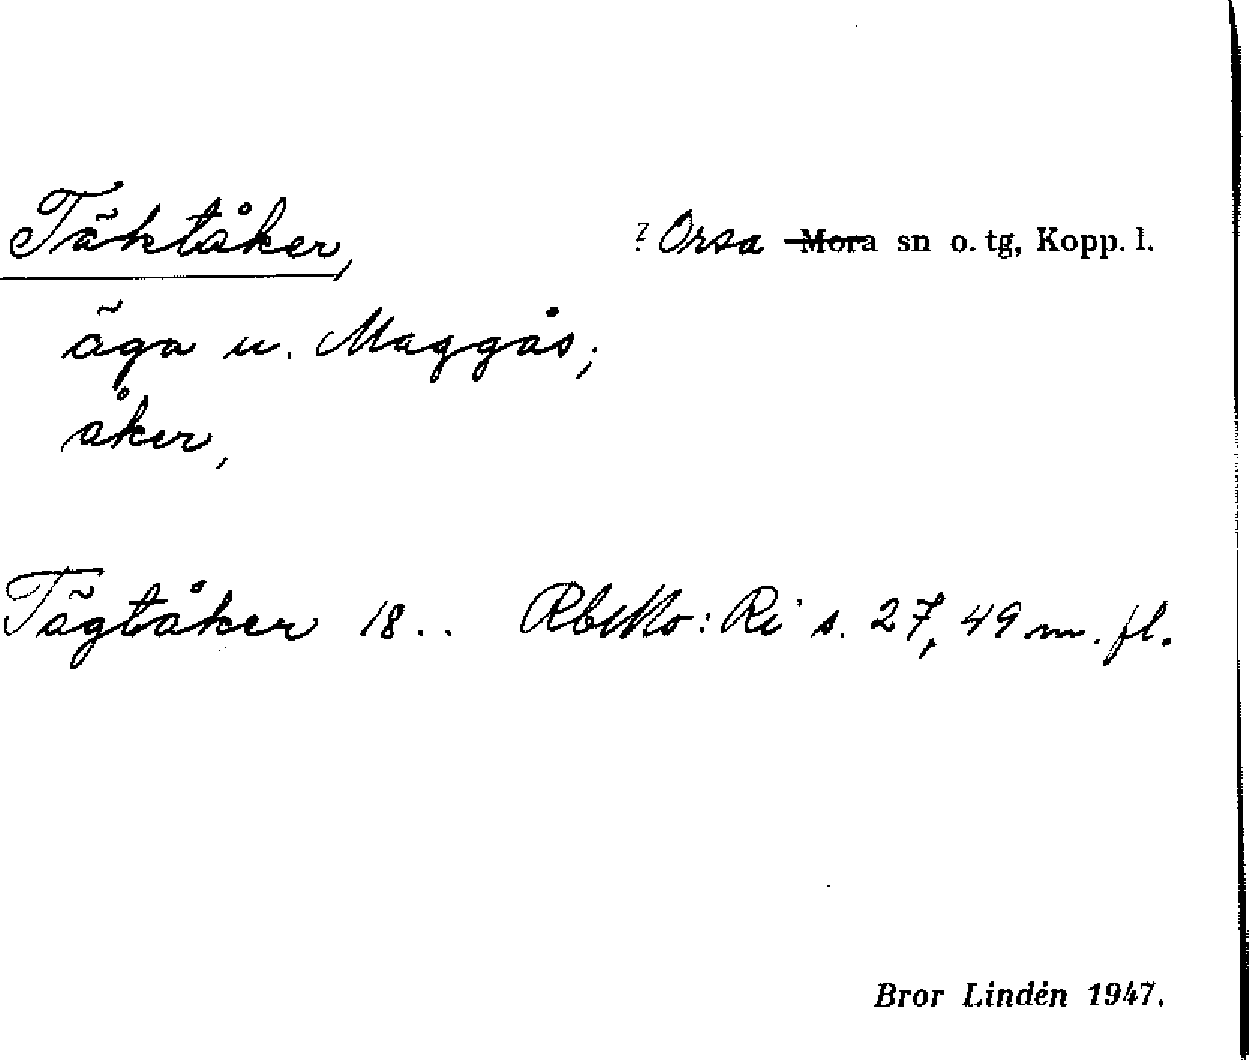 Täktåker, ? Orsa Mora sn o. tg, Kopp. l.
äga u. Maggås;
åker,
Tägtåker 18.. RbMo: Ri s. 27, 49 m. fl.
Bror Lindén 1947.